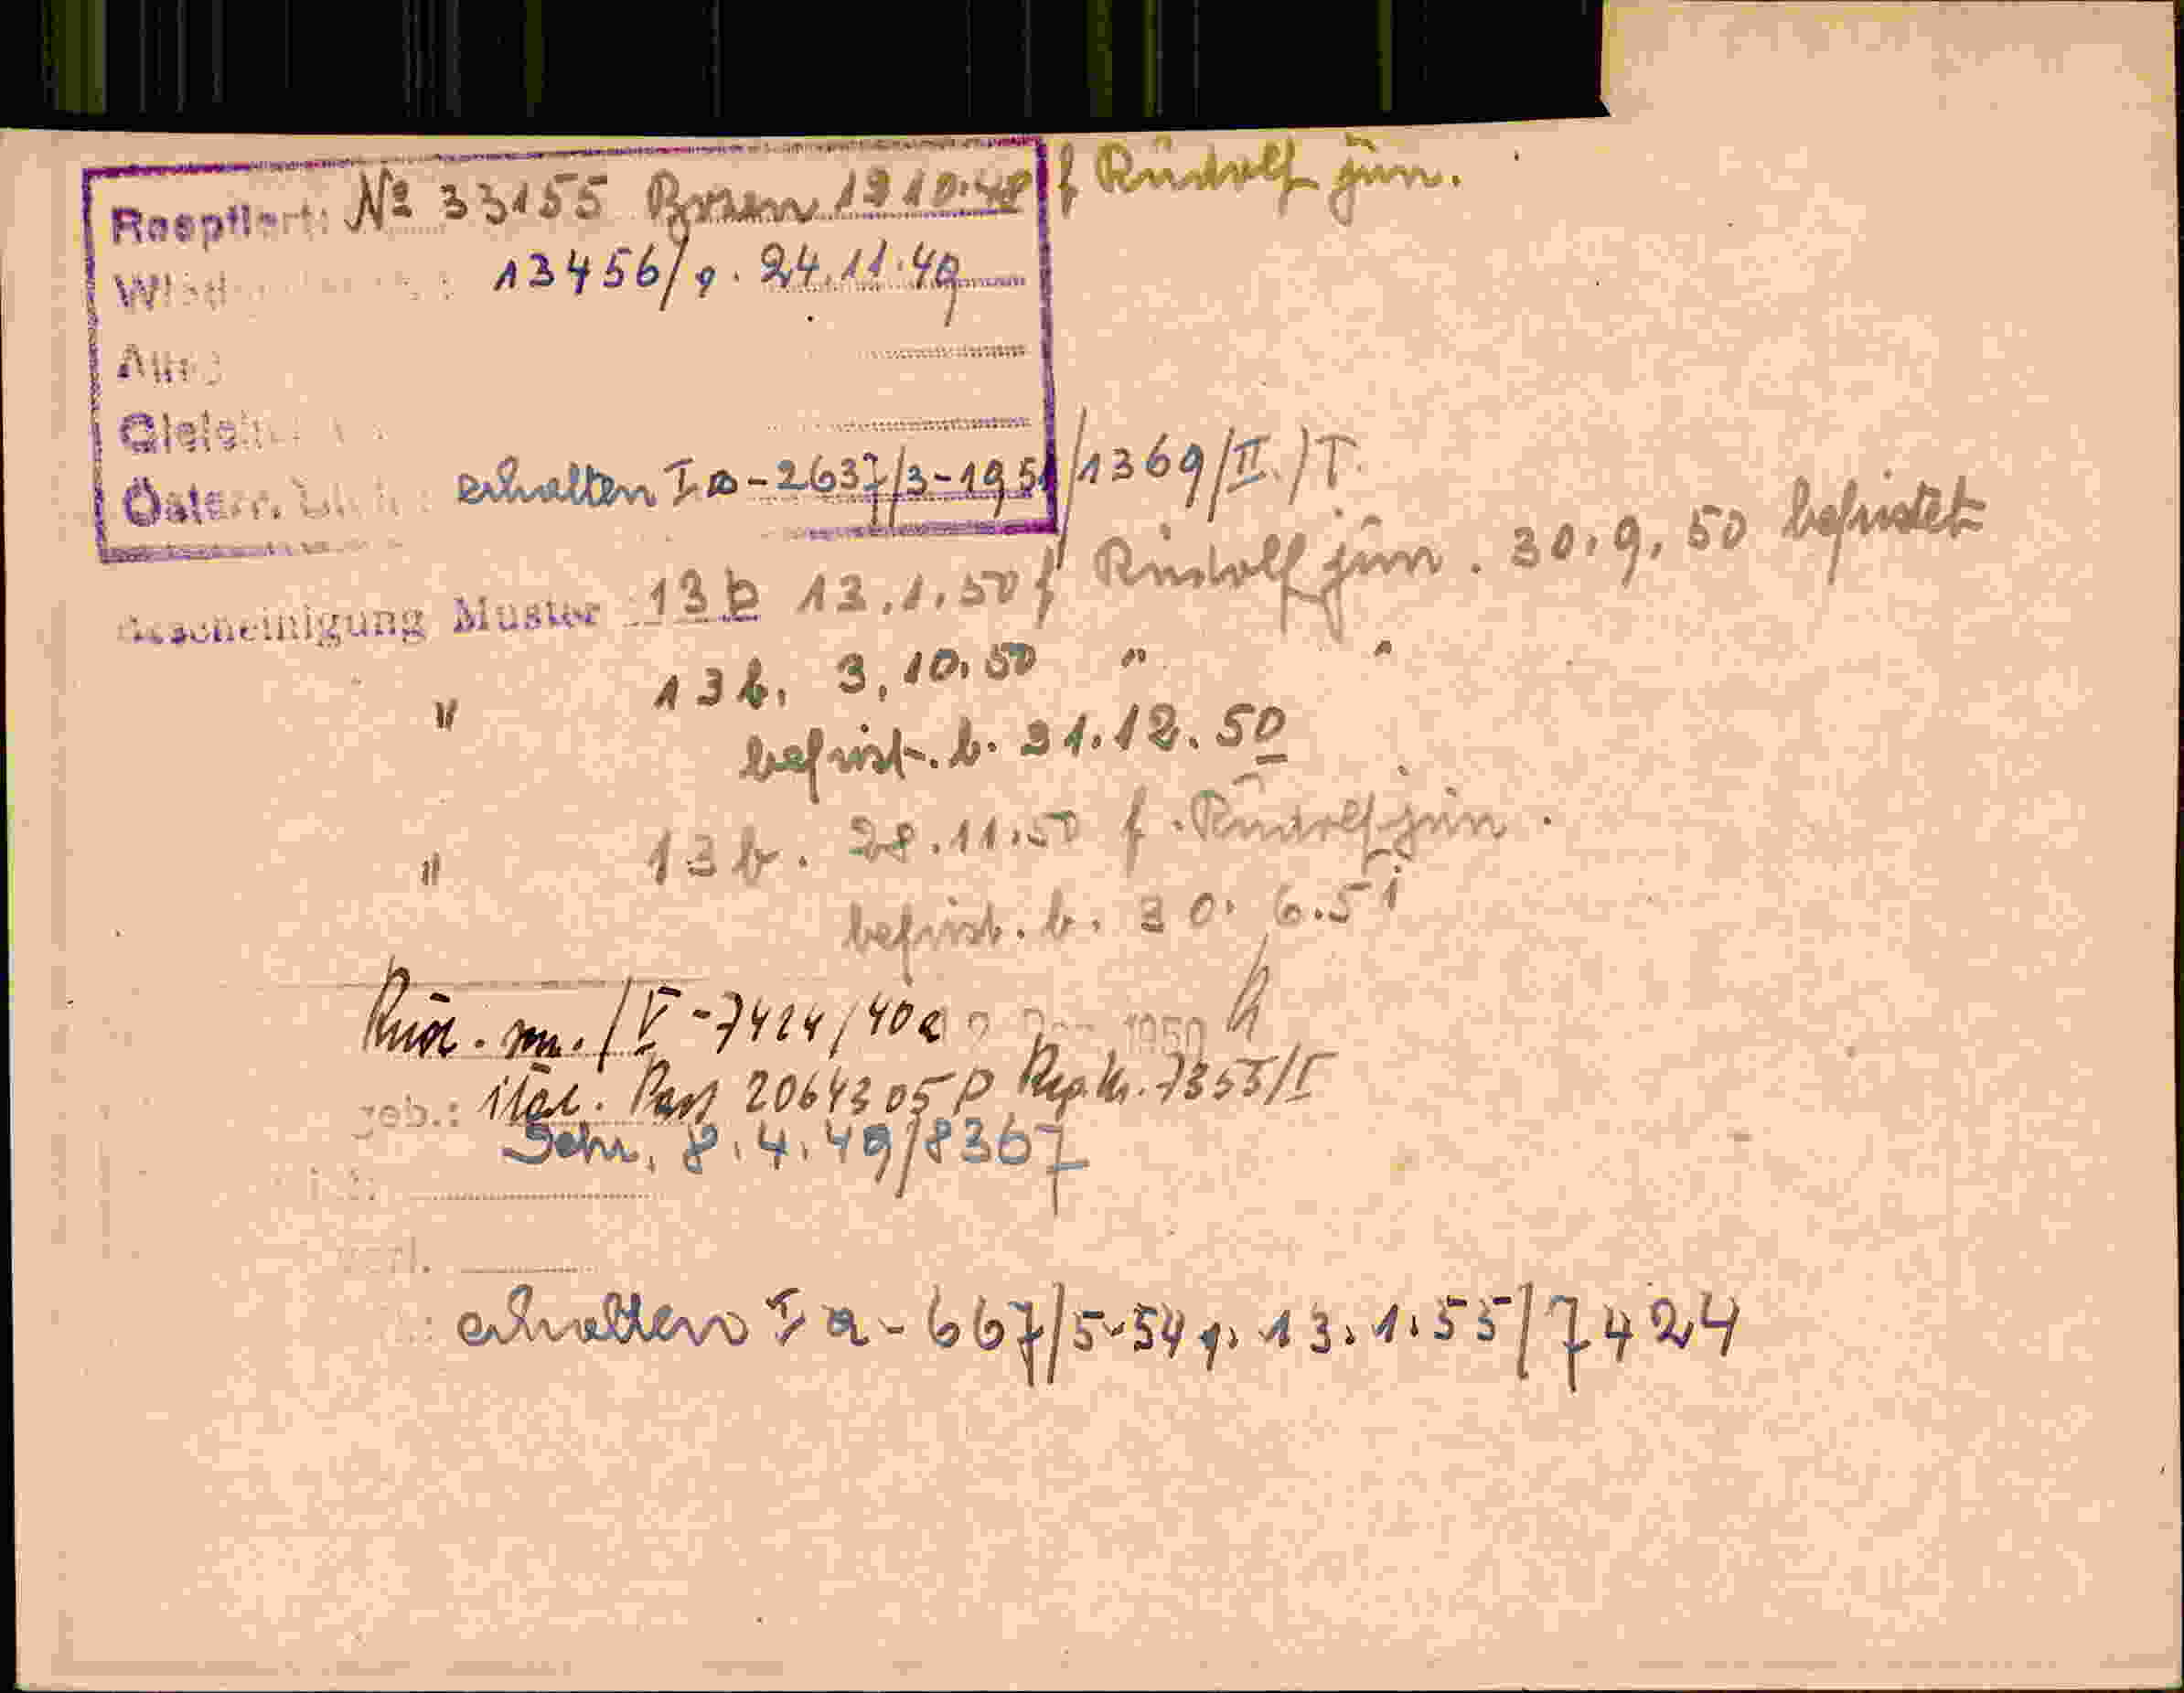 Reoptiert: № 33155 Bozen 19 10.48 f Rudolf jun.
13456/g. 24.11.49
erhalten I a-2637/3-1951/1369/II./T.
Bescheinigung Muster 13b 13.1.50 f Rudolf jun. 30.9.50 befristet
" 13b. 3.10.50 " "
befrist. b. 31.12.50
" 13b. 28.11.50 f. Rudolf jun.
befrist. b. 30.6.51
/V-7424/40a 1950
geb.: ital. Pass 2064305 P Rep. Nr. 7355/I
Schr. 8.4.49/8367
verl.
erhalten I a-667/5-54 g. 13.1.55/7424